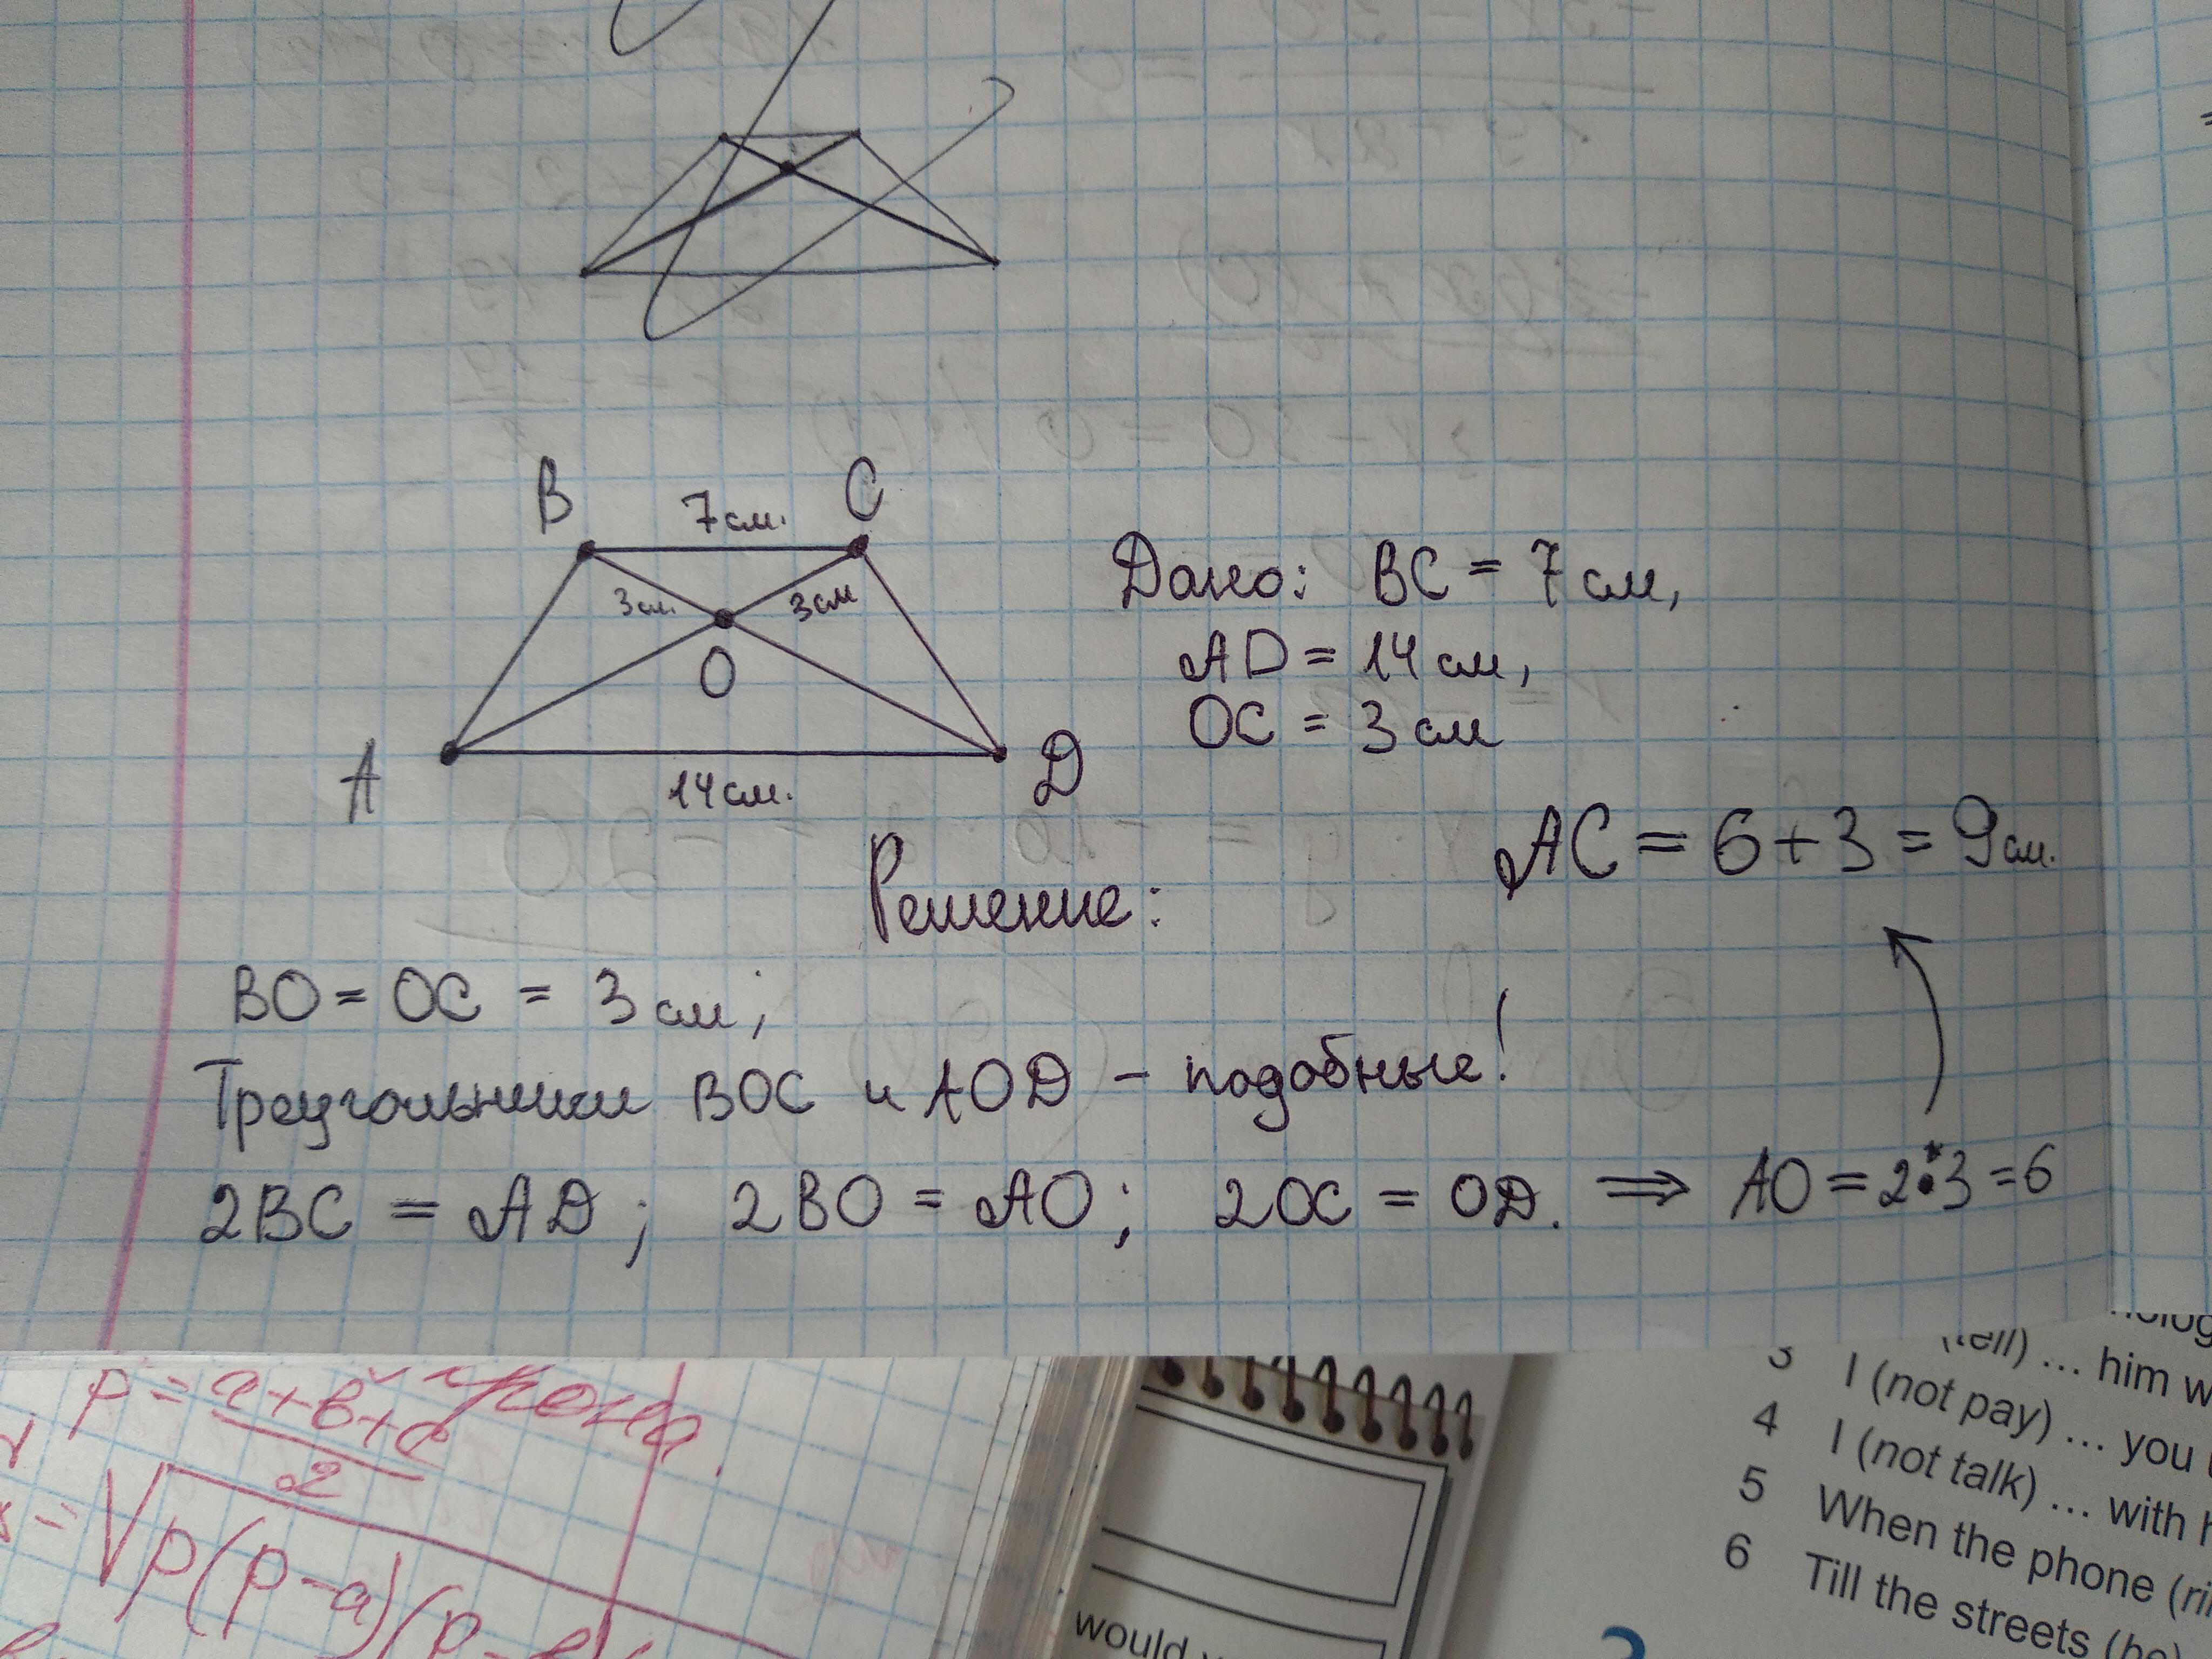 B 7см. C
3см. 3см
O
A 14см. D
Дано: BC = 7см,
AD = 14см,
OC = 3см
AC = 6+3 = 9см.
Решение:
BO = OC = 3см;
Треугольники BOC и AOD – подобные!
2BC = AD; 2BO = AO; 2OC = OD. ⇒ AO = 2•3 = 6
p = a+b+c
2
√p(p-a)(p-b
(tell) ... him w
3 I (not pay) ... you
4 I (not talk) ... with h
5 When the phone (ri
6 Till the streets (be)
would